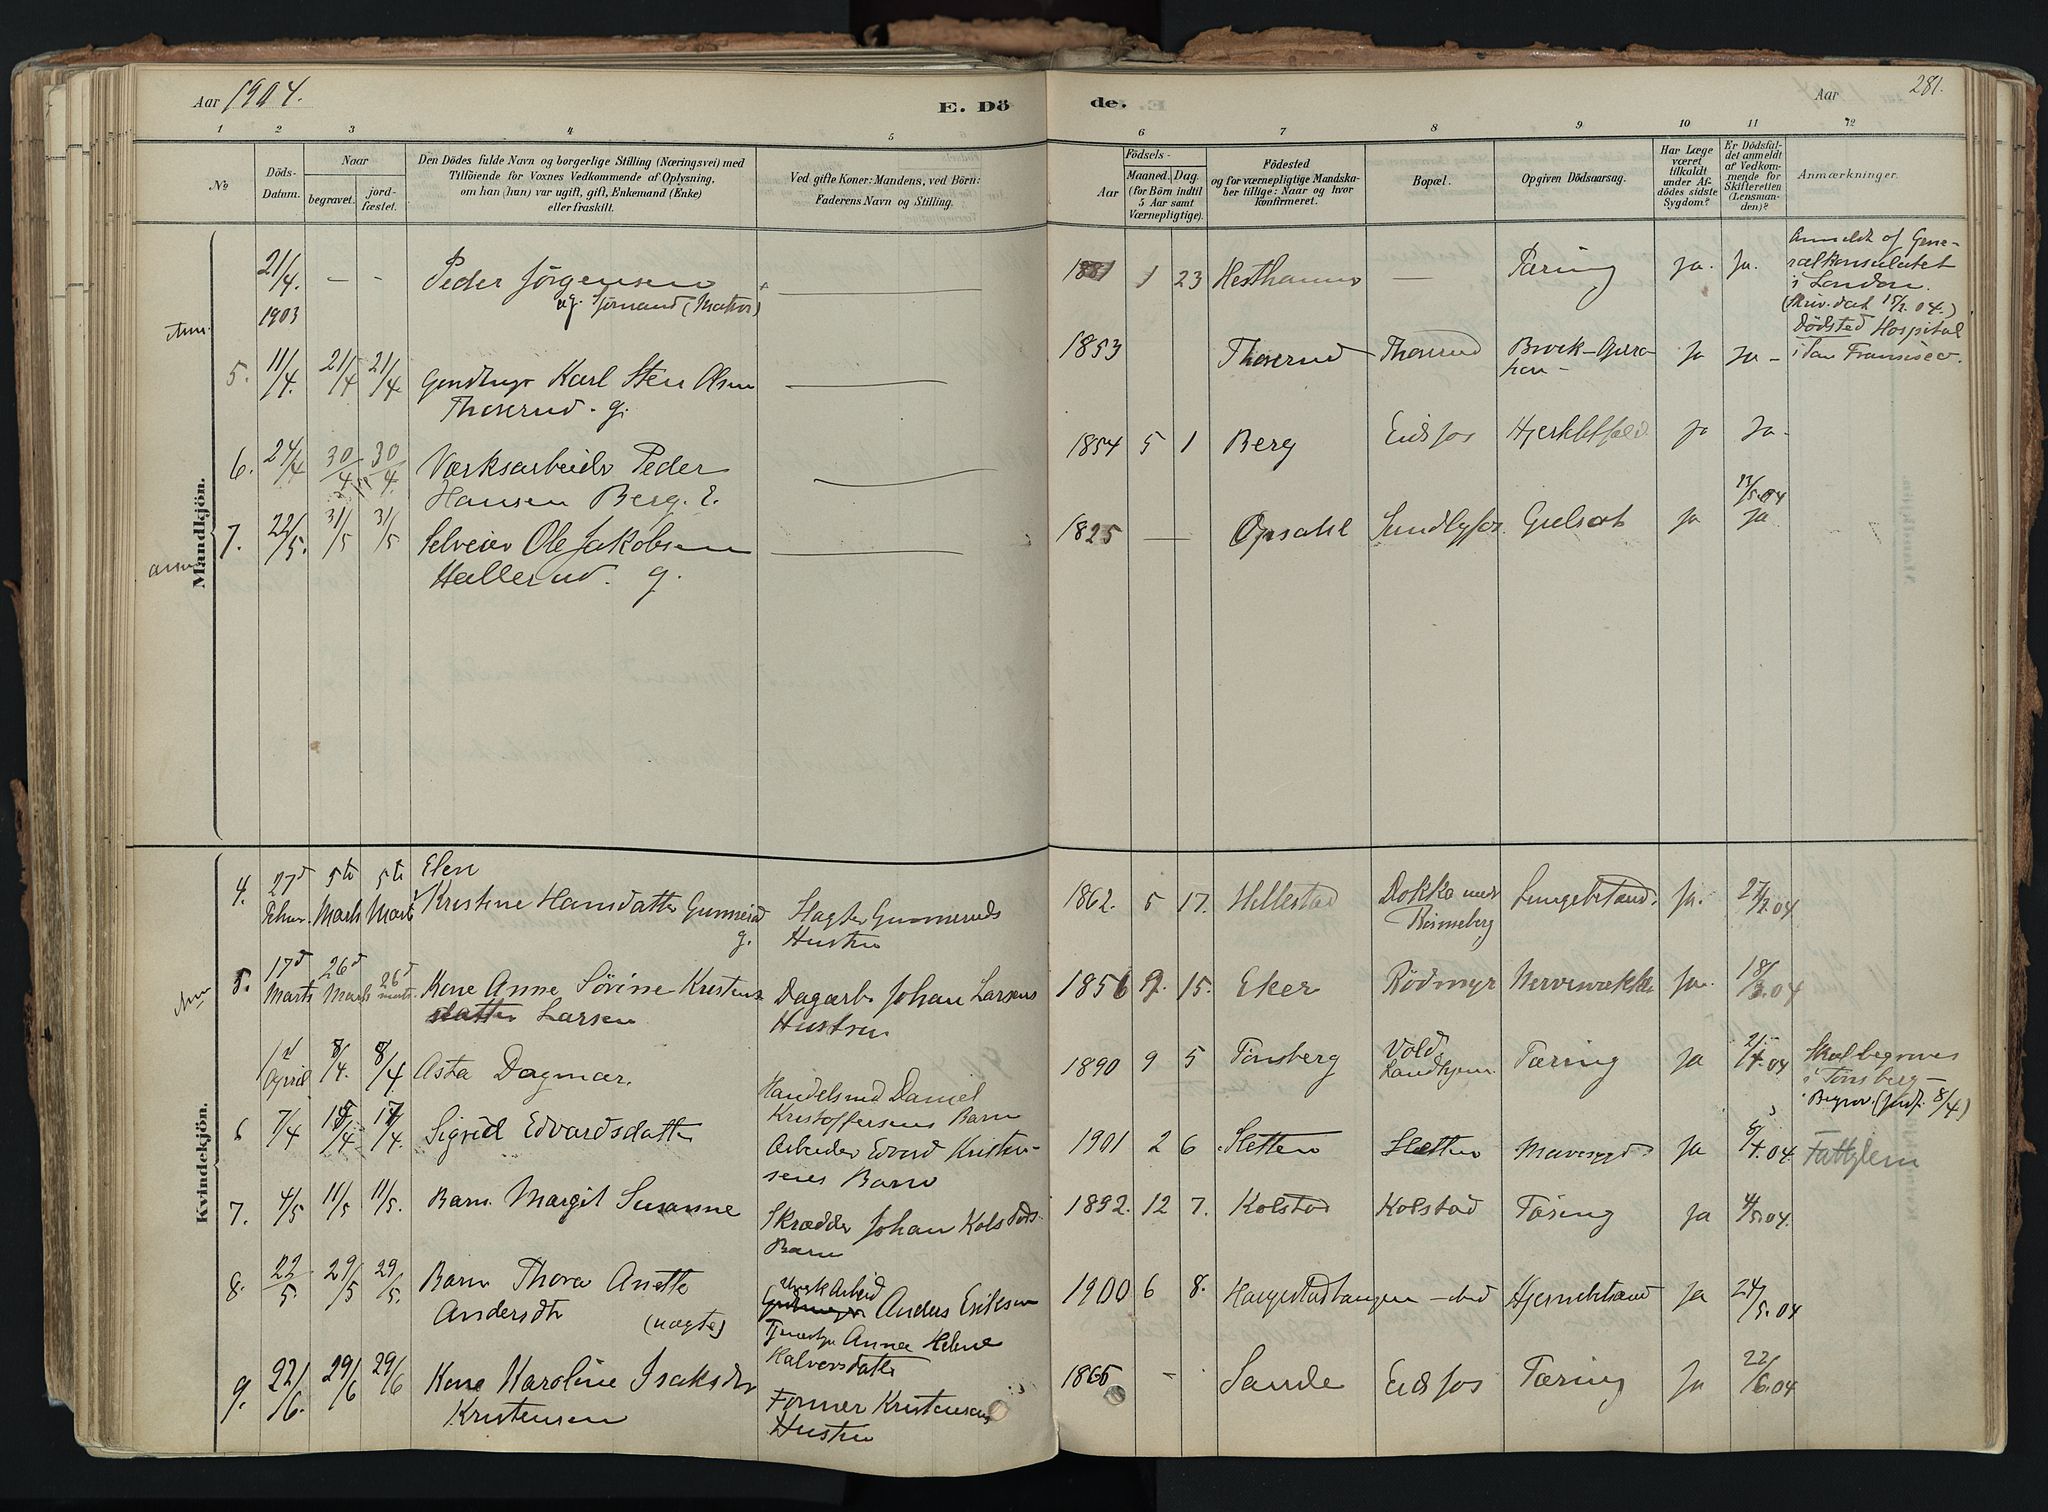 Aar 1904.
E. Dö
de.
Aar
281.
1 2 3 4 5 6 7 8 9 10 11 12
No
Döds-
Datum.
Naar
begravet.
jord-
fæstet.
Den Dödes fulde Navn og borgerlige Stilling (Næringsvei) med
Tilföiende for Voxnes Vedkommende af Oplysning,
om han (hun) var ugift, gift, Enkemand (Enke)
eller fraskilt.
Ved gifte Koner: Mandens, ved Börn:
Faderens Navn og Stilling.
Födsels-
Aar
Maaned. Dag.
(for Börn indtil
5 Aar samt
Værnepligtige).
Födested
og for værnepligtige Mandska-
ber tillige: Naar og hvor
konfirmeret.
Bopæl.
Opgiven Dödsaarsag.
Har Læge
været
tilkaldt
under Af-
dödes sidste
Sygdom?
Er Dödsfal-
det anmeldt
af Vedkom-
mende for
Skifteretten
(Lensman-
den)?
Anmærkninger.
Mandkjön.
21/4. 1903 — - Peder Jörgensen 1881 1 23 — Tæring Ja. Ja. Anmeldt af Gene-
ug. Sjömand (Matros)
ralkonsulatet
i London.
(Skriv. dat. 15/2. 04.)
Dödsted Hospital
i San Fransisco.
5. 11/4. 21/4 21/4 Karl Sten Olsen 1853 Thorerud Thorerud Brok-Opera- Ja Ja -
Thorerud. g.
6. 24/4 30/4 30/4. Værksarbeider Peder 1854 5 1 Berg Eidsfos Ja Ja -
Hansen Berg.
7. 22/5. 31/5 31/5 Selveier Ole Jakobsen 1825 — Opsahl Gulsot Ja 13/5.04 Ja
Hallerud. g.
Kvindekjön.
4. 27d Febr. 5te Marts 5te Marts Elen
Kristine Hansdatter Gunnerud g. Gunneruds
Hustru
1862. 5 17. Hillestad Dokka Lungebetænd. Ja. 27/2.04
5. 17d Marts 26d Marts 26d marts. Kone Anne Sörine Kristens-
datter Larsen Dagarb. Johan Larsens
Hustru
1856 9. 15. Eker Rödmyr Ja. 18/3.04
1ste April 8/4. 8/4 Asta Dagmar. Daniel
Kristoffersens Barn
1890 9 5 Tönsberg Vold Tæring Ja 2/4.04 Skal begraves
i Tönsberg -
Begrav. (Jordf. 8/4)
6 7/4 17/4 17/4. Sigrid Edvardsdatter Arbeider Edvard Kristen-
sens Barn
1901 2 6 Sletten Sletten Mavesygd. Ja 8/4.04. Fattiglem
7. 4/5 11/5 11/5. Barn Margit Susanne Skrædder Johan Kolstads
Barn
1892. 12 7. Kolstad Kolstad Tæring Ja 4/5.04.
8. 22/5. 29/5 29/5. Barn Thora Anette
Andersdtr (uægte) Værk Arbeid Anders Eriksen
Anna Helene
Halvorsdatter
1900 6 8. Haugestadtangen - ibid Hjernebetænd Ja 24/5.04
9. 22/6. 29/6 29/6 Kone Karoline Isaksdtr
Kristensen Former Kristensens
Hustru
1865 - Sande Eidsfos Tæring Ja 22/6.04